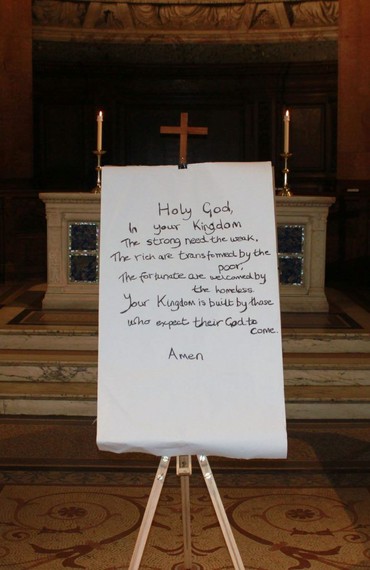 Holy God,
In your Kingdom
The strong need the weak.
The rich are transformed by the
poor,
The fortunate are welcomed by
the homeless
Your Kingdom is built by those
who expect their God to
come.
Amen